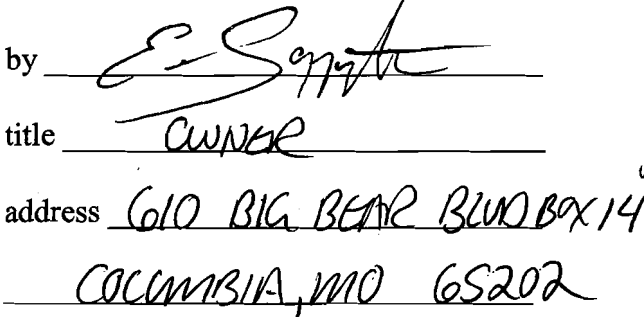 by
title OWNER
address 610 BIG BEAR BLVD BOX 14
COLUMBIA, MO 65202